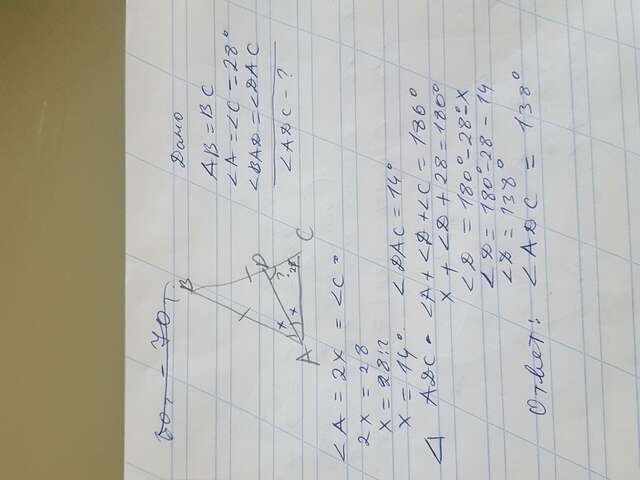 Дано
AB = BC
∠A = ∠C = 28°
∠BAD = ∠DAC
∠ADC = ?
B
D
A
C
x
x
?
28
∠A = 2x = ∠C =
2x = 28
x = 28:2
x = 14° ∠DAC = 14°
△ ADC = ∠A + ∠D + ∠C = 180°
x + ∠D + 28 = 180°
∠D = 180° - 28° - x
∠D = 180° - 28 - 14
∠D = 138°
Ответ: ∠ADC = 138°